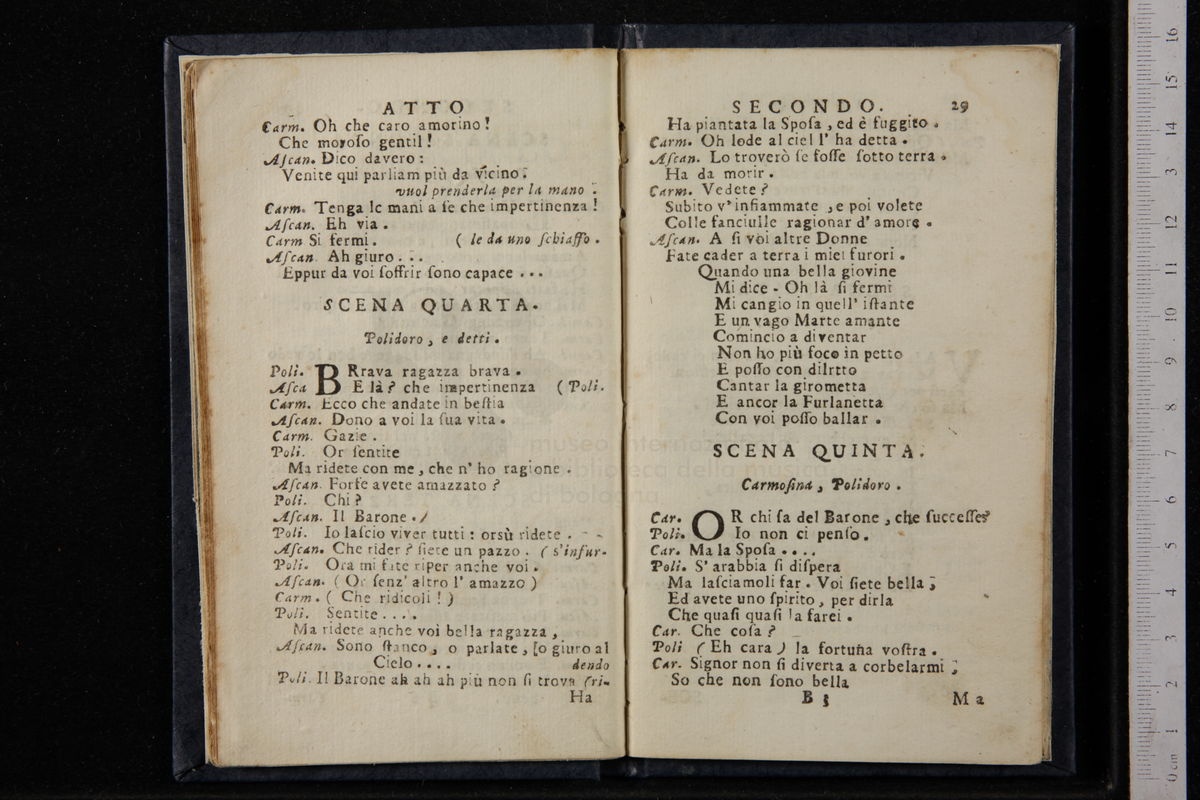 ATTO
Carm. Oh che caro amorino!
Che moroso gentil!
Aſcan. Dico davero:
Venite qui parliam più da vicino.
vuol prenderla per la mano.
Carm. Tenga le mani a ſe che impertinenza!
Aſcan. Eh via.
Carm Si fermi. ( le da uno ſchiaffo.
Aſcan. Ah giuro...
Eppur da voi ſoffrir ſono capace...
SCENA QUARTA.
Polidoro, e detti.
Poli. BRrava ragazza brava.
Aſca E là? che impertinenza (Poli.
Carm. Ecco che andate in beſtia
Aſcan. Dono a voi la ſua vita.
Carm. Gazie.
Poli. Or ſentite
Ma ridete con me, che n' ho ragione.
Aſcan. Forſe avete amazzato?
Poli. Chi?
Aſcan. Il Barone./
Poli. Io laſcio viver tutti: orsù ridete.
Aſcan. Che rider? ſiete un pazzo. (s'infur-
Poli. Ora mi fate riper anche voi.
Aſcan. (Or ſenz' altro l' amazzo)
Carm. (Che ridicoli!)
Poli. Sentite....
Ma ridete anche voi bella ragazza,
Aſcan. Sono ſtanco, o parlate, ſo giuro al
Cielo.... dendo
Poli. Il Barone ah ah ah più non ſi trova (ri-
Ha
SECONDO. 29
Ha piantata la Spoſa, ed è fuggito.
Carm. Oh lode al ciel l' ha detta.
Aſcan. Lo troverò ſe foſſe ſotto terra.
Ha da morir.
Carm. Vedete?
Subito v' infiammate, e poi volete
Colle fanciulle ragionar d' amore.
Aſcan. A ſi voi altre Donne
Fate cader a terra i miei furori.
Quando una bella giovine
Mi dice - Oh là ſi fermi
Mi cangio in quell' iſtante
E un vago Marte amante
Comincio a diventar
Non ho più foco in petto
E poſſo con dilrtto
Cantar la girometta
E ancor la Furlanetta
Con voi poſſo ballar.
SCENA QUINTA.
Carmoſina, Polidoro.
Car. OR chi ſa del Barone, che ſucceſſe?
Poli. Io non ci penſo.
Car. Ma la Spoſa....
Poli. S' arabbia ſi diſpera
Ma laſciamoli far. Voi ſiete bella;
Ed avete uno ſpirito, per dirla
Che quaſi quaſi la farei.
Car. Che coſa?
Poli (Eh cara) la fortuna voſtra.
Car. Signor non ſi diverta a corbelarmi;
So che non ſono bella
B 3 Ma
museo internazionale
biblioteca della musica
di bologna
0 cm 1 2 3 4 5 6 7 8 9 10 11 12 13 14 15 16